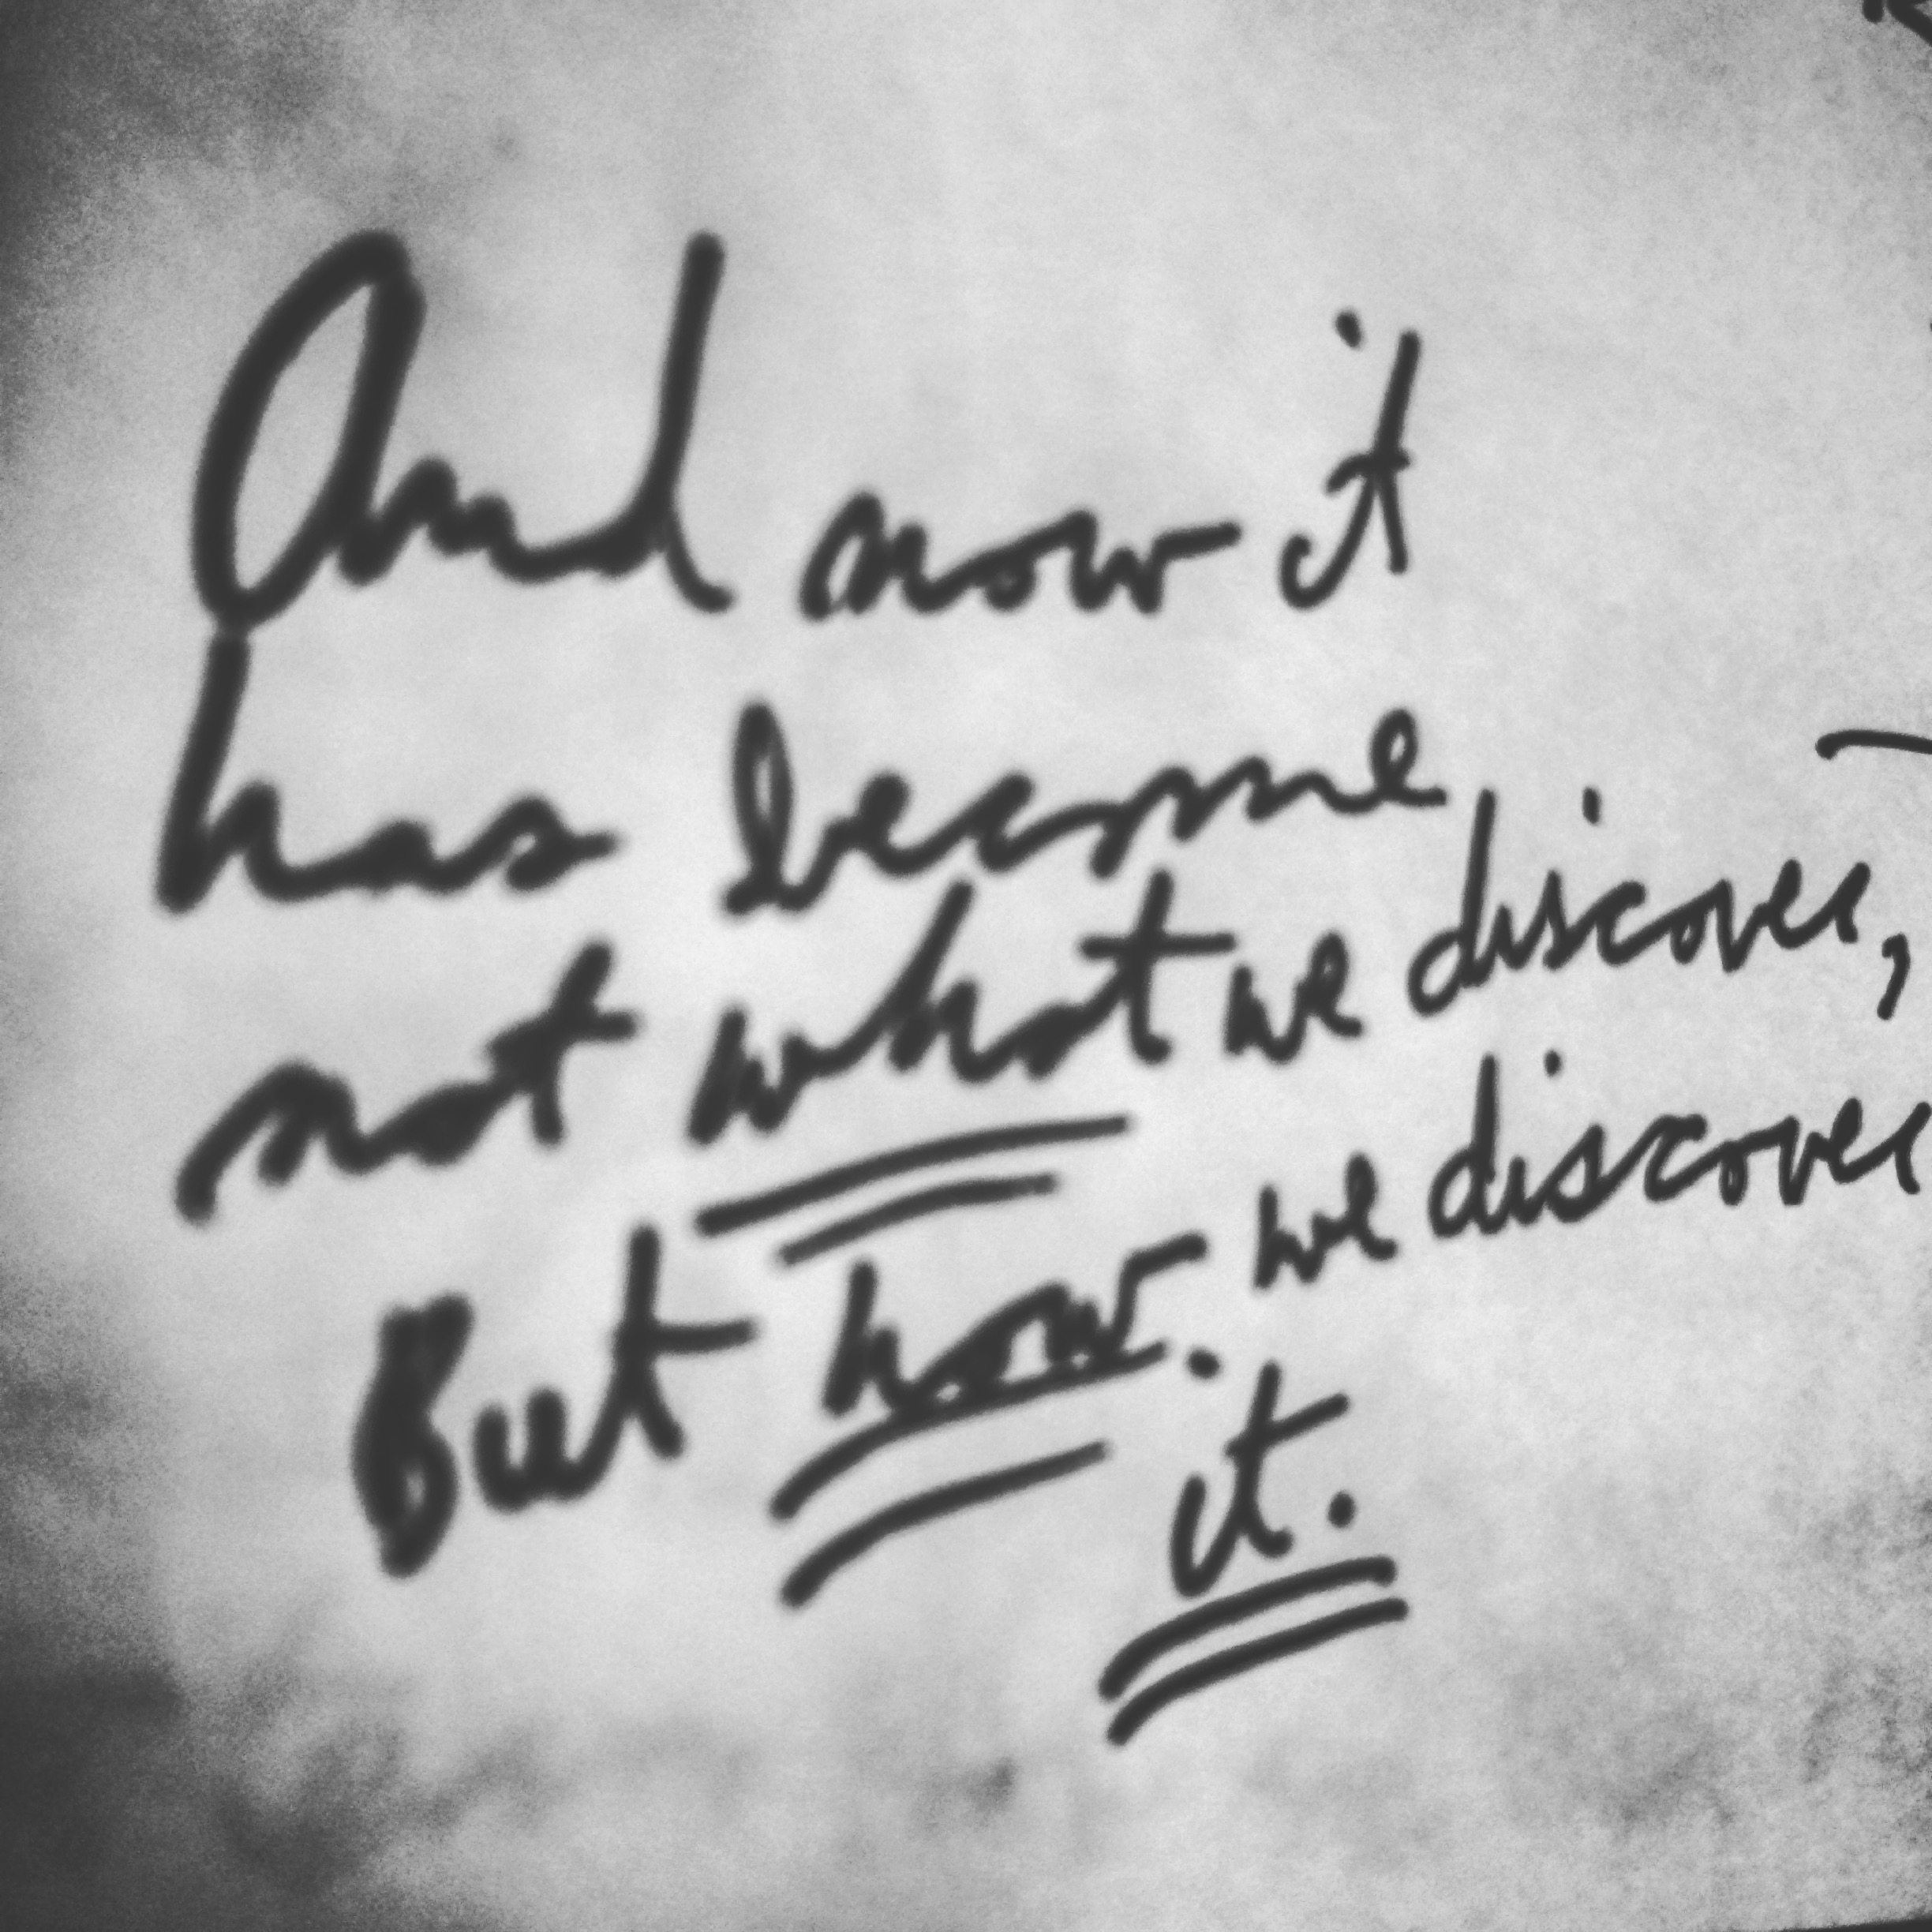 And now it
has become
not what we discover,
But how. we discover
it.